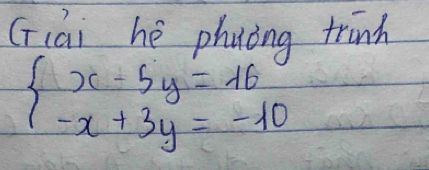 Giải hệ phương trình
{ x - 5y = 16
-x + 3y = -10